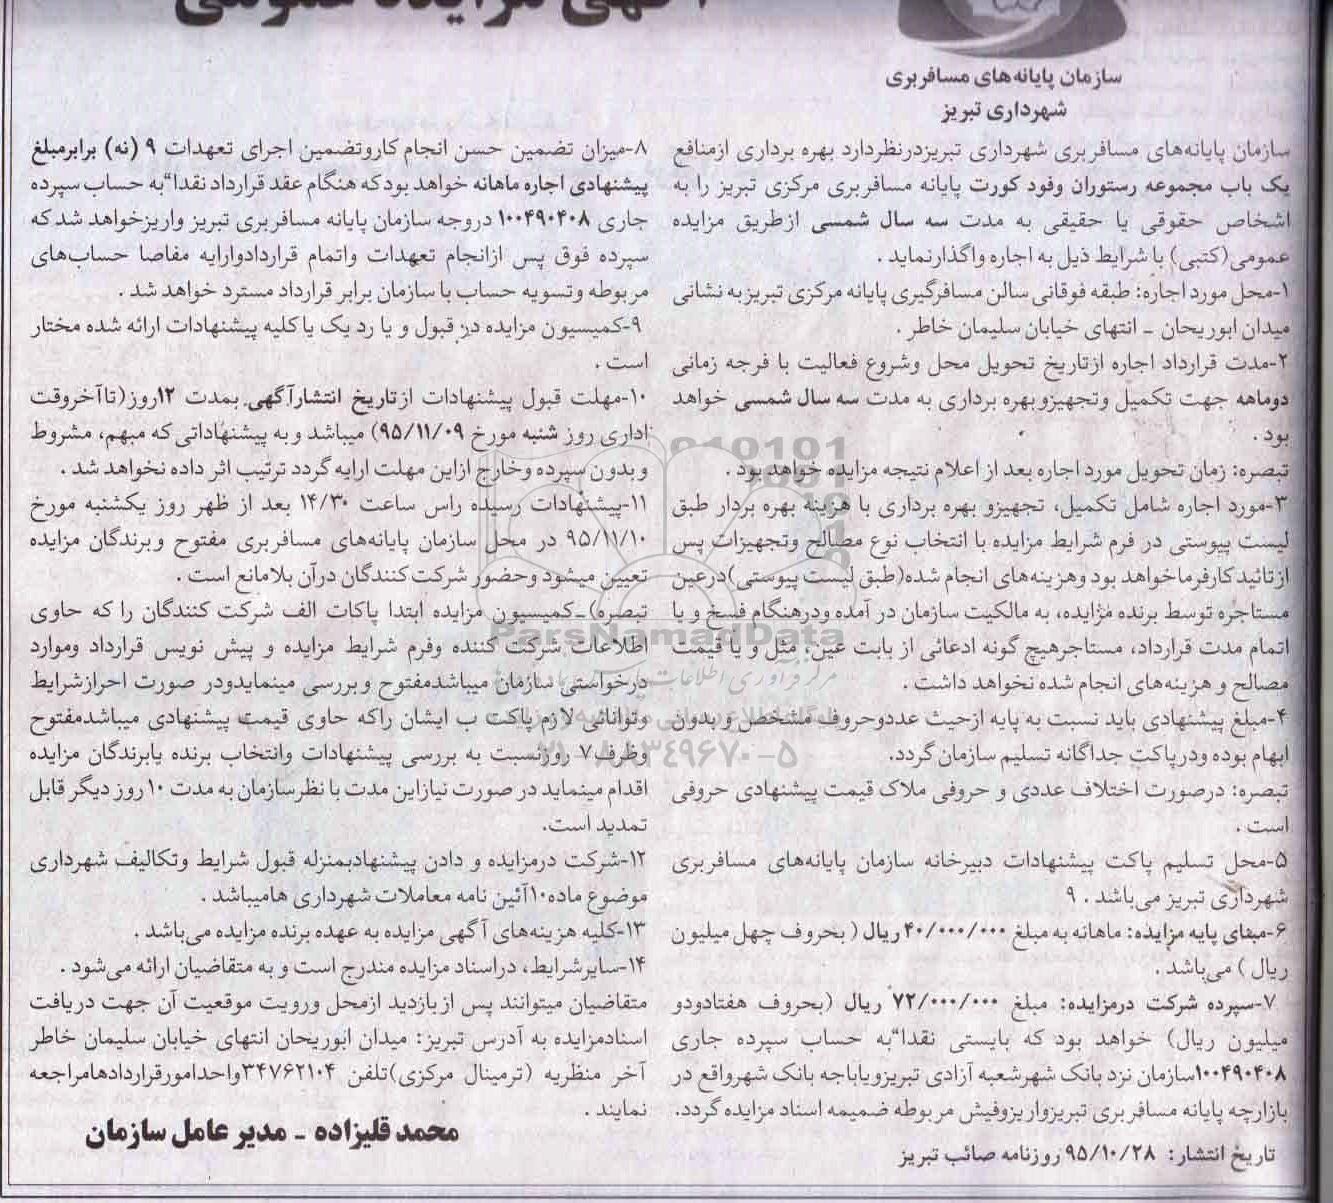 آگهی مزایده عمومی
سازمان پایانه‌های مسافربری
شهرداری تبریز
سازمان پایانه‌های مسافربری شهرداری تبریزدرنظردارد بهره برداری ازمنافع
یک باب مجموعه رستوران وفود کورت پایانه مسافربری مرکزی تبریز را به
اشخاص حقوقی یا حقیقی به مدت سه سال شمسی ازطریق مزایده
عمومی(کتبی) با شرایط ذیل به اجاره واگذارنماید .
۱-محل مورد اجاره: طبقه فوقانی سالن مسافرگیری پایانه مرکزی تبریزبه نشانی
میدان ابوریحان - انتهای خیابان سلیمان خاطر .
۲-مدت قرارداد اجاره ازتاریخ تحویل محل وشروع فعالیت با فرجه زمانی
دوماهه جهت تکمیل وتجهیزوبهره برداری به مدت سه سال شمسی خواهد
بود .
تبصره: زمان تحویل مورد اجاره بعد از اعلام نتیجه مزایده خواهد بود .
۳-مورد اجاره شامل تکمیل، تجهیزو بهره برداری با هزینه بهره بردار طبق
لیست پیوستی در فرم شرایط مزایده با انتخاب نوع مصالح وتجهیزات پس
ازتائید کارفرما خواهد بود وهزینه‌های انجام شده(طبق لیست پیوستی)درعین
مستاجره توسط برنده مزایده، به مالکیت سازمان در آمده ودرهنگام فسخ و یا
اتمام مدت قرارداد، مستاجرهیچ گونه ادعائی از بابت عین، مثل و یا قیمت
مصالح و هزینه‌های انجام شده نخواهد داشت .
۴-مبلغ پیشنهادی باید نسبت به پایه ازحیث عددوحروف مشخص و بدون
ابهام بوده ودرپاکت جداگانه تسلیم سازمان گردد.
تبصره: درصورت اختلاف عددی و حروفی ملاک قیمت پیشنهادی حروفی
است .
۵-محل تسلیم پاکت پیشنهادات دبیرخانه سازمان پایانه‌های مسافربری
شهرداری تبریز می‌باشد . ۹
۶-مبنای پایه مزایده: ماهانه به مبلغ ۴۰/۰۰۰/۰۰۰ ریال ( بحروف چهل میلیون
ریال ) می‌باشد .
۷-سپرده شرکت درمزایده: مبلغ ۷۲/۰۰۰/۰۰۰ ریال (بحروف هفتادودو
میلیون ریال) خواهد بود که بایستی نقدا"به حساب سپرده جاری
۱۰۰۴۹۰۴۰۸سازمان نزد بانک شهرشعبه آزادی تبریزویاباجه بانک شهرواقع در
بازارچه پایانه مسافربری تبریزواریزوفیش مربوطه ضمیمه اسناد مزایده گردد.
تاریخ انتشار: ۹۵/۱۰/۲۸ روزنامه صائب تبریز
۸-میزان تضمین حسن انجام کاروتضمین اجرای تعهدات ۹ (نه) برابرمبلغ
پیشنهادی اجاره ماهانه خواهد بودکه هنگام عقد قرارداد نقدا"به حساب سپرده
جاری ۱۰۰۴۹۰۴۰۸ دروجه سازمان پایانه مسافربری تبریز واریزخواهد شد که
سپرده فوق پس ازانجام تعهدات واتمام قراردادوارایه مفاصا حساب‌های
مربوطه وتسویه حساب با سازمان برابر قرارداد مسترد خواهد شد .
۹-کمیسیون مزایده در قبول و یا رد یک یا کلیه پیشنهادات ارائه شده مختار
است .
۱۰-مهلت قبول پیشنهادات ازتاریخ انتشارآگهی بمدت ۱۲روز(تاآخروقت
اداری روز شنبه مورخ ۹۵/۱۱/۰۹) میباشد و به پیشنهاداتی که مبهم، مشروط
و بدون سپرده وخارج ازاین مهلت ارایه گردد ترتیب اثر داده نخواهد شد .
۱۱-پیشنهادات رسیده راس ساعت ۱۴/۳۰ بعد از ظهر روز یکشنبه مورخ
۹۵/۱۱/۱۰ در محل سازمان پایانه‌های مسافربری مفتوح وبرندگان مزایده
تعیین میشود وحضور شرکت کنندگان درآن بلامانع است .
تبصره)-کمیسیون مزایده ابتدا پاکات الف شرکت کنندگان را که حاوی
اطلاعات شرکت کننده وفرم شرایط مزایده و پیش نویس قرارداد وموارد
درخواستی سازمان میباشدمفتوح و بررسی مینمایدودر صورت احرازشرایط
وتوانائی لازم پاکت ب ایشان راکه حاوی قیمت پیشنهادی میباشدمفتوح
وظرف۷ روزنسبت به بررسی پیشنهادات وانتخاب برنده یابرندگان مزایده
اقدام مینماید در صورت نیازاین مدت با نظرسازمان به مدت ۱۰ روز دیگر قابل
تمدید است.
۱۲-شرکت درمزایده و دادن پیشنهادبمنزله قبول شرایط وتکالیف شهرداری
موضوع ماده۱۰آئین نامه معاملات شهرداری هامیباشد .
۱۳-کلیه هزینه‌های آگهی مزایده به عهده برنده مزایده می‌باشد .
۱۴-سایرشرایط، دراسناد مزایده مندرج است و به متقاضیان ارائه می‌شود .
متقاضیان میتوانند پس از بازدید ازمحل ورویت موقعیت آن جهت دریافت
اسنادمزایده به آدرس تبریز: میدان ابوریحان انتهای خیابان سلیمان خاطر
آخر منظریه (ترمینال مرکزی)تلفن ۳۴۷۶۲۱۰۴واحدامورقراردادهامراجعه
نمایند .
محمد قلیزاده - مدیر عامل سازمان
ParsNamadData
۰۲۱-۸۸۳۴۹۶۷۰-۵